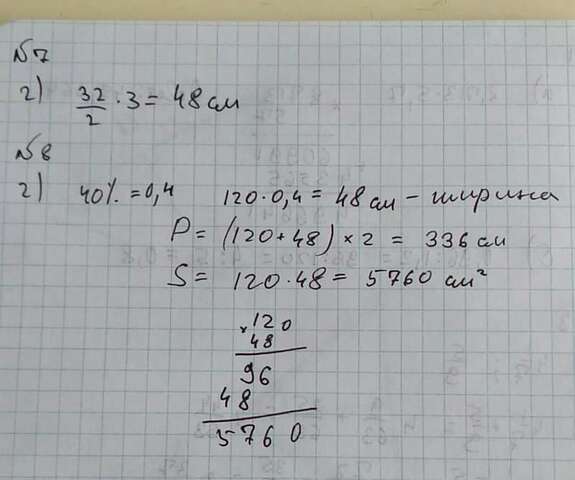 №7
2) 32/2 · 3 = 48 см
№8
2) 40% = 0,4 120 · 0,4 = 48 см – ширина
P = (120 + 48) × 2 = 336 см
S = 120 · 48 = 5760 см²
× 120
48
96
48
5760